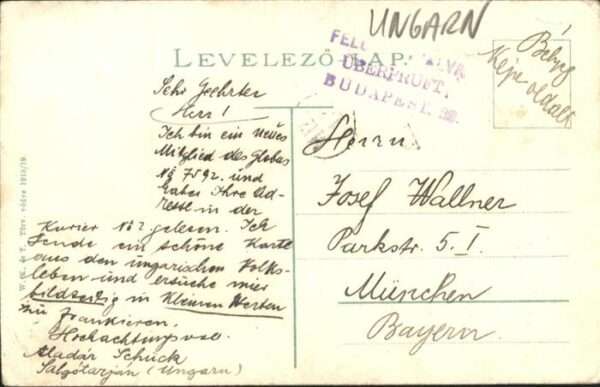 UNGARN
LEVELEZŐ-LAP.
ÜBERPRÜFT.
BUDAPEST.
Bélyeg
képes oldalt
Sehr Geehrter
Herr!
Ich bin ein neues
Mitglied des Globus
No 7592. und
habe Ihre Ad-
resse in der
Kurier No 2. gelesen. Ich
sende ein schöne Karte
aus den ungarischen Volks-
leben und ersuche mir
bildseitig in kleinen Werten
zu frankieren.
Hochachtungsvoll
Aladár Schück
Salgótarján (Ungarn)
Herrn
Josef Wallner
Parkstr. 5. I.
München
Bayern.
védve 1918/19